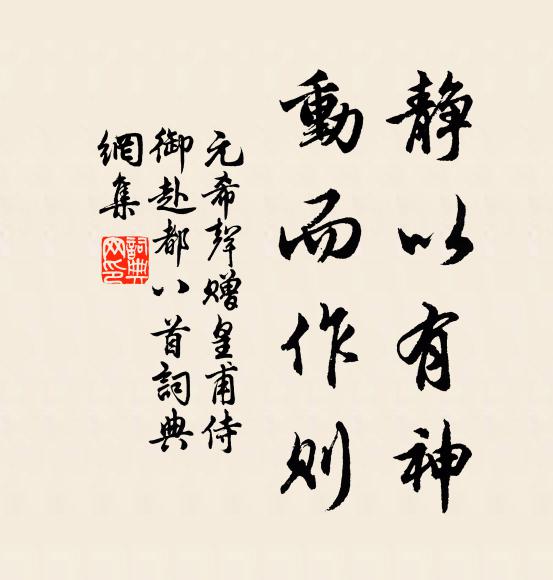 静以有神
動而作則
元希聲贈皇甫侍
御赴都八首詞典
網集
詞典網印